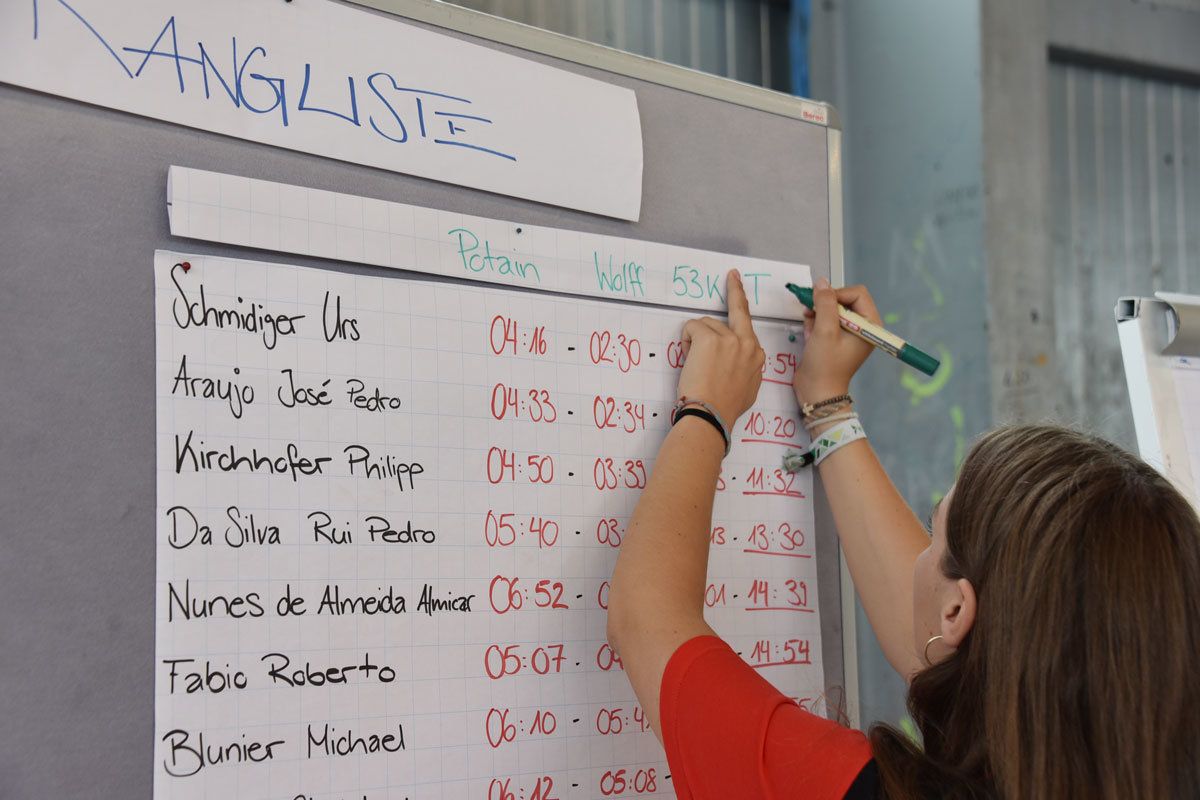 RANGLISTE
Potain Wolff 53K T
Schmidiger Urs 04:16 - 02:30 - :54
Araujo José Pedro 04:33 - 02:34 - 10:20
Kirchhofer Philipp 04:50 - 03:39 - 11:32
Da Silva Rui Pedro 05:40 - 03: 13 - 13:30
Nunes de Almeida Almicar 06:52 - 01 - 14:39
Fabio Roberto 05:07 - - 14:54
Blunier Michael 06:10 - 05:4
06:12 - 05:08 -